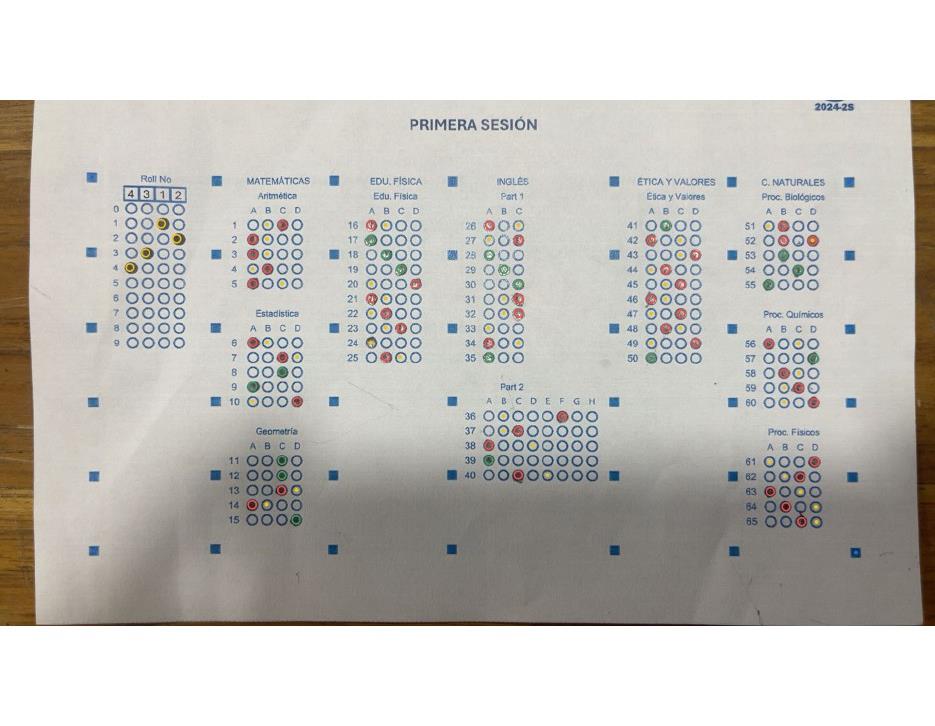 2024-2S
PRIMERA SESIÓN
Roll No
4 3 1 2
0
1
2
3
4
5
6
7
8
9
MATEMÁTICAS
Aritmética
A B C D
1
2
3
4
5
Estadística
6
7
8
9
10
Geometría
A B C D
11
12
13
14
15
EDU. FÍSICA
Edu. Física
A B C D
16
17
18
19
20
21
22
23
24
25
INGLÉS
Part 1
A B C
26
27
28
29
30
31
32
33
34
35
Part 2
A B C D E F G H
36
37
38
39
40
ÉTICA Y VALORES
Ética y Valores
A B C D
41
42
43
44
45
46
47
48
49
50
C. NATURALES
Proc. Biológicos
A B C D
51
52
53
54
55
Proc. Químicos
A B C D
56
57
58
59
60
Proc. Físicos
A B C D
61
62
63
64
65